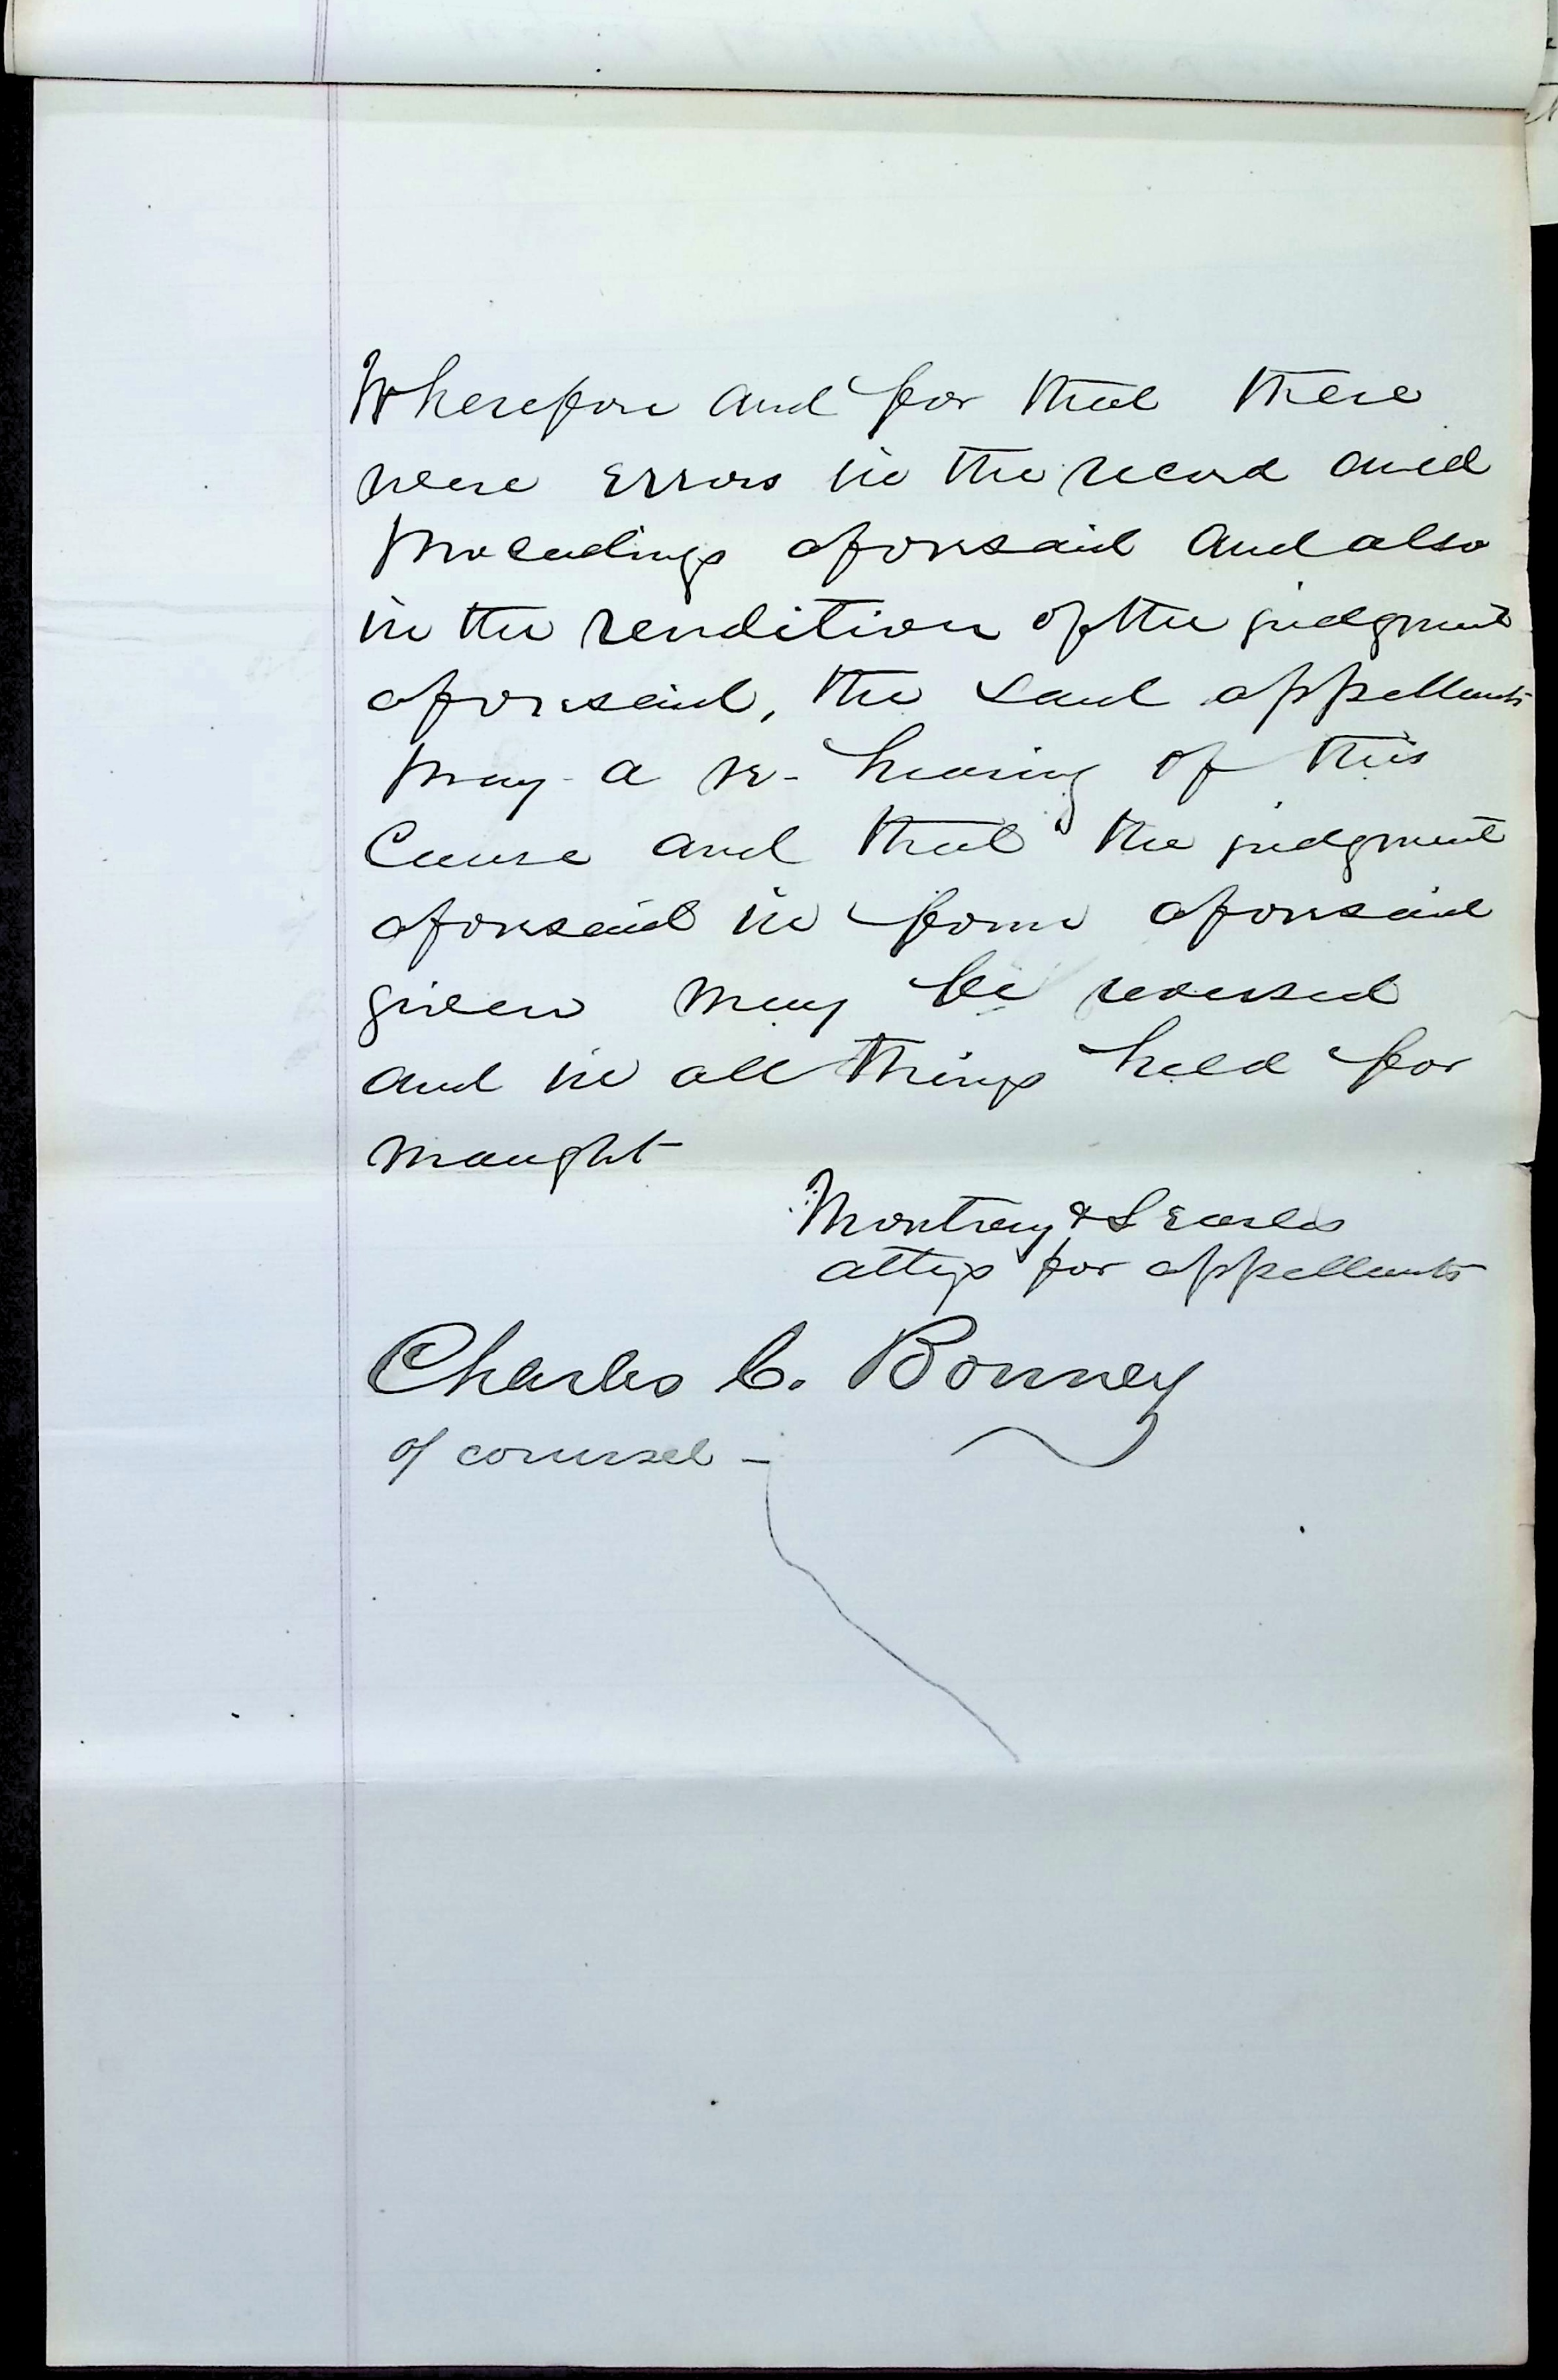 Wherefore and for that there
were errors in the record and
proceedings aforesaid and also
in the rendition of the judgment
aforesaid, the said appellants
pray a re-hearing of this
Cause and that the judgment
aforesaid in form aforesaid
given may be reversed
and in all things held for
naught
& Searles
attys for appellants
Charles C. Bonney
of counsel -